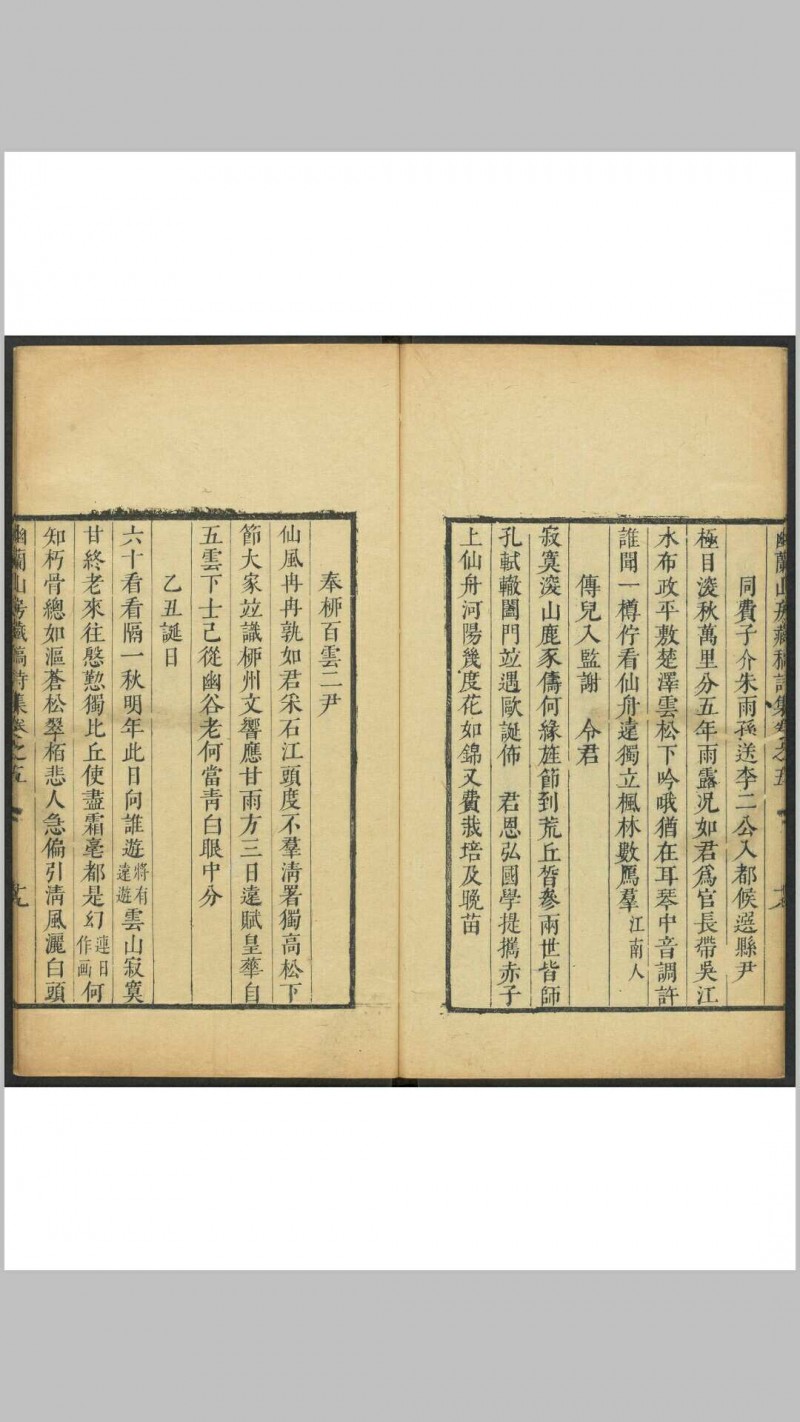 幽蘭山房藏稿詩集卷之五
同費子介朱雨孫送李二公入都候選縣尹
極目深秋萬里分五年雨露况如君爲官長帶吳江
水布政平敷楚澤雲松下吟哦猶在耳琴中音調許
誰聞一樽佇看仙舟遠獨立楓林數鴈羣江南人
傳兒入監謝　令君
寂寞深山鹿豕儔何緣旌節到荒丘嘗參兩世皆師
孔軾轍闔門竝遇歐誕佈　君恩弘國學提攜赤子
上仙舟河陽幾度花如錦又費栽培及晚苗
奉栁百雲二尹
仙風冉冉孰如君采石江頭度不羣清署獨高松下
節大家竝識栁州文響應甘雨方三日遠賦皇華自
五雲下士已從幽谷老何當青白眼中分
乙丑誕日
六十看看隔一秋明年此日向誰遊將有遠遊雲山寂寞
甘終老來往慇懃獨比丘使盡霜毫都是幻連日作画何
知朽骨總如漚蒼松翠栢悲人急偏引清風灑白頭
幽蘭山房藏稿詩集卷之五